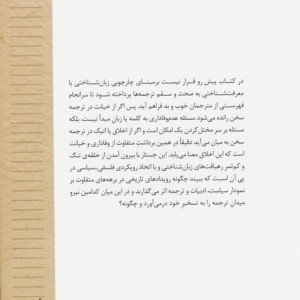 در کتاب پیش رو قرار نیست برمبنای چارچوبی زبان‌شناختی یا
معرفت‌شناختی به صحت و سقم ترجمه‌ها پرداخته شود تا سرانجام
فهرستی از مترجمان خوب و بد فراهم آید. پس اگر از خیانت در ترجمه
سخن رانده می‌شود مسئله عدم‌وفاداری به کلمه یا زبان مبدأ نیست، بلکه
مسئله بر سر مختل‌کردن یک امکان است و اگر از اخلاق یا اتیک در ترجمه
سخن به میان می‌آید دقیقاً در همین برداشت متفاوت از وفاداری و خیانت
است که این اخلاق معنا می‌یابد. این جستار با بیرون آمدن از حلقه‌ی تنگ
و کم‌ثمر رهیافت‌های زبان‌شناختی و با اتخاذ رویکردی فلسفی‌ـ‌سیاسی در
پی آن است که ببیند چگونه رویدادهای تاریخی در برهه‌های متفاوت بر
نمودار سیاست، ادبیات و ترجمه اثر می‌گذارند و در این میان کدامین نیرو
میدان ترجمه را به تسخیر خود درمی‌آورد و چگونه؟